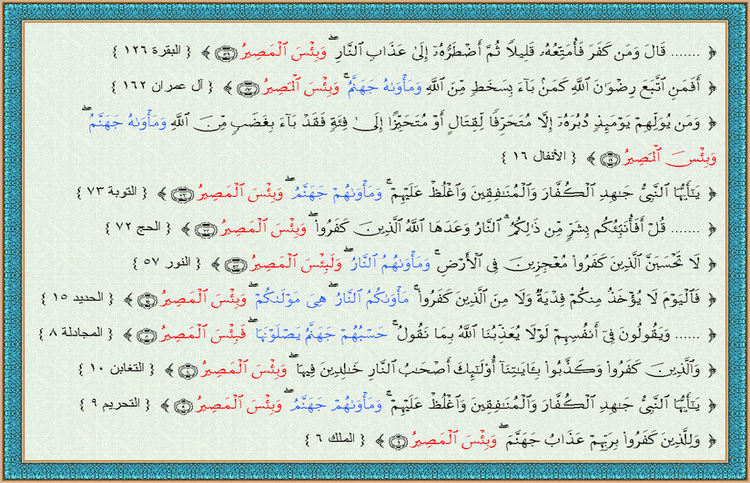 ﴿ ....... قَالَ وَمَن كَفَرَ فَأُمَتِّعُهُۥ قَلِيلًا ثُمَّ أَضْطَرُّهُۥٓ إِلَىٰ عَذَابِ ٱلنَّارِ ۖ وَبِئْسَ ٱلْمَصِيرُ ﴾ { البقرة ١٢٦ }
﴿ أَفَمَنِ ٱتَّبَعَ رِضْوَٰنَ ٱللَّهِ كَمَنۢ بَآءَ بِسَخَطٍ مِّنَ ٱللَّهِ وَمَأْوَىٰهُ جَهَنَّمُ ۚ وَبِئْسَ ٱلْمَصِيرُ ﴾ { آل عمران ١٦٢ }
﴿ وَمَن يُوَلِّهِمْ يَوْمَئِذٍ دُبُرَهُۥٓ إِلَّا مُتَحَرِّفًا لِّقِتَالٍ أَوْ مُتَحَيِّزًا إِلَىٰ فِئَةٍ فَقَدْ بَآءَ بِغَضَبٍ مِّنَ ٱللَّهِ وَمَأْوَىٰهُ جَهَنَّمُ ۖ
وَبِئْسَ ٱلْمَصِيرُ ﴾ { الأنفال ١٦ }
﴿ يَٰٓأَيُّهَا ٱلنَّبِىُّ جَٰهِدِ ٱلْكُفَّارَ وَٱلْمُنَٰفِقِينَ وَٱغْلُظْ عَلَيْهِمْ ۚ وَمَأْوَىٰهُمْ جَهَنَّمُ ۖ وَبِئْسَ ٱلْمَصِيرُ ﴾ { التوبة ٧٣ }
﴿ ....... قُلْ أَفَأُنَبِّئُكُم بِشَرٍّ مِّن ذَٰلِكُمُ ۗ ٱلنَّارُ وَعَدَهَا ٱللَّهُ ٱلَّذِينَ كَفَرُوا۟ ۖ وَبِئْسَ ٱلْمَصِيرُ ﴾ { الحج ٧٢ }
﴿ لَا تَحْسَبَنَّ ٱلَّذِينَ كَفَرُوا۟ مُعْجِزِينَ فِى ٱلْأَرْضِ ۚ وَمَأْوَىٰهُمُ ٱلنَّارُ ۖ وَلَبِئْسَ ٱلْمَصِيرُ ﴾ { النور ٥٧ }
﴿ فَٱلْيَوْمَ لَا يُؤْخَذُ مِنكُمْ فِدْيَةٌ وَلَا مِنَ ٱلَّذِينَ كَفَرُوا۟ ۚ مَأْوَىٰكُمُ ٱلنَّارُ ۖ هِىَ مَوْلَىٰكُمْ ۖ وَبِئْسَ ٱلْمَصِيرُ ﴾ { الحديد ١٥ }
﴿ ...... وَيَقُولُونَ فِىٓ أَنفُسِهِمْ لَوْلَا يُعَذِّبُنَا ٱللَّهُ بِمَا نَقُولُ ۚ حَسْبُهُمْ جَهَنَّمُ يَصْلَوْنَهَا ۖ فَبِئْسَ ٱلْمَصِيرُ ﴾ { المجادلة ٨ }
﴿ وَٱلَّذِينَ كَفَرُوا۟ وَكَذَّبُوا۟ بِـَٔايَٰتِنَآ أُو۟لَٰٓئِكَ أَصْحَٰبُ ٱلنَّارِ خَٰلِدِينَ فِيهَا ۖ وَبِئْسَ ٱلْمَصِيرُ ﴾ { التغابن ١٠ }
﴿ يَٰٓأَيُّهَا ٱلنَّبِىُّ جَٰهِدِ ٱلْكُفَّارَ وَٱلْمُنَٰفِقِينَ وَٱغْلُظْ عَلَيْهِمْ ۚ وَمَأْوَىٰهُمْ جَهَنَّمُ ۖ وَبِئْسَ ٱلْمَصِيرُ ﴾ { التحريم ٩ }
﴿ وَلِلَّذِينَ كَفَرُوا۟ بِرَبِّهِمْ عَذَابُ جَهَنَّمَ ۖ وَبِئْسَ ٱلْمَصِيرُ ﴾ { الملك ٦ }